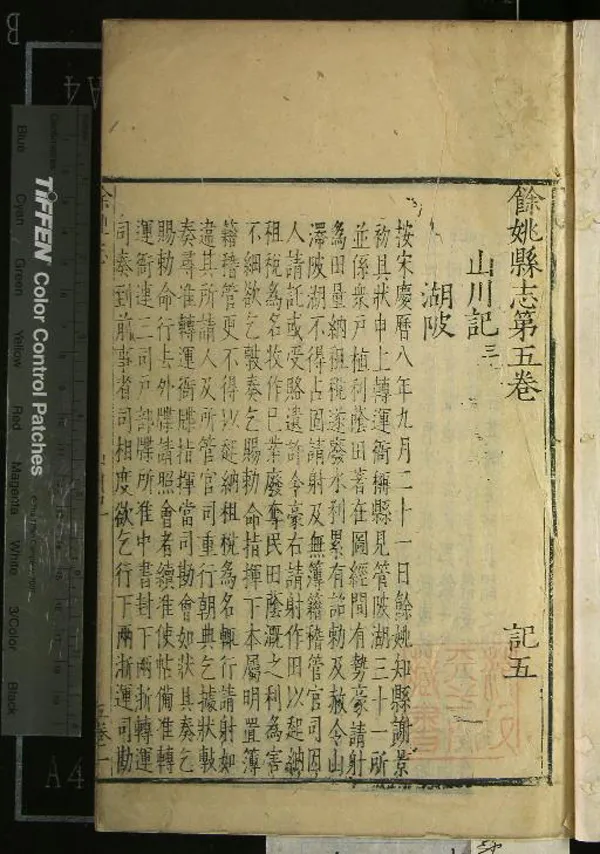 餘姚縣志第五卷
記五
山川記三
湖陂
按宋慶曆八年九月二十一日餘姚知縣謝景
初具狀申上轉運衙稱縣見管陂湖三十一所
並係衆戶植利蔭田著在圖經間有勢豪請射
為田量納租稅遂廢水利累有詔勅及赦令山
澤陂湖不得占固請射及無簿籍稽管官司因
人請託或受賂遺許令豪右請射作田以起納
租稅為名攸作已業廢奪民田蔭溉之利為害
不細欲乞敷奏乞賜勅命指揮下本屬明置簿
籍稽管更不得以起納租稅為名輒行請射如
違其所請人及所管官司重行朝典乞據狀敷
奏尋准轉運衙牒指揮當司勘會如狀具奏乞
賜勅命行去外牒請照會者續准使帖備准轉
運衙連三司戶部牒所准中書封下兩浙轉運
司奏到前事者司相度欲乞行下兩浙運司勘
一
TIFFEN Color Control Patches
Blue
Cyan
Green
Yellow
Red
Magenta
White
3/Color
Black
A4
A4
B